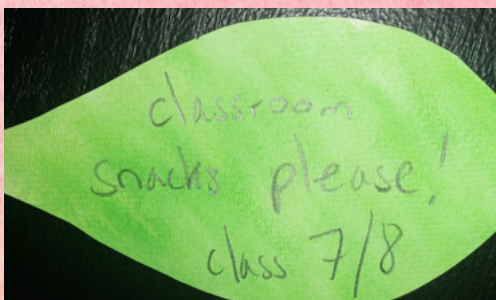 classroom
snacks please!
class 7/8